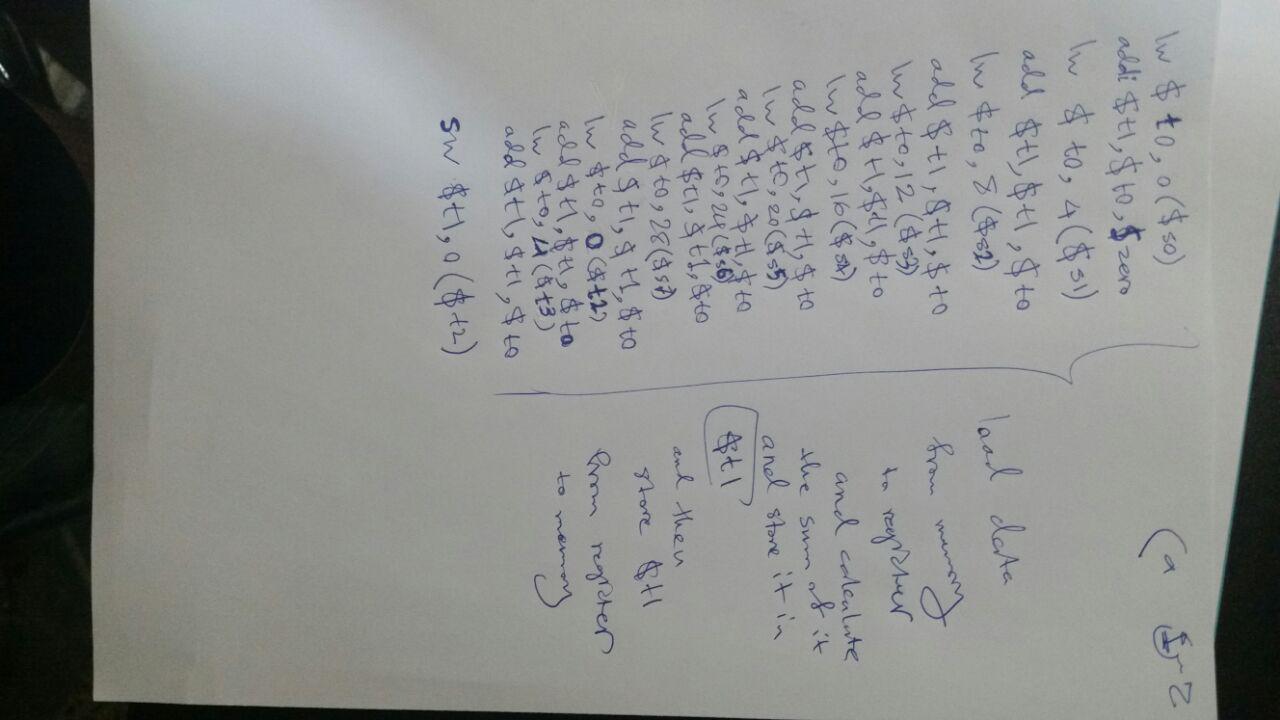 (a 1-2
lw $t0, 0($s0)
addi $t1, $t0, $zero
lw $t0, 4($s1)
add $t1, $t1, $t0
lw $t0, 8($s2)
add $t1, $t1, $t0
lw $t0, 12($s3)
add $t1, $t1, $t0
lw $t0, 16($s4)
add $t1, $t1, $t0
lw $t0, 20($s5)
add $t1, $t1, $t0
lw $t0, 24($s6)
add $t1, $t1, $t0
lw $t0, 28($s7)
add $t1, $t1, $t0
lw $t0, 0($t2)
add $t1, $t1, $t0
lw $t0, 4($t3)
add $t1, $t1, $t0
sw $t1, 0($t2)
load data
from memory
to register
and calculate
the sum of it
and store it in
$t1
and then
store $t1
from register
to memory